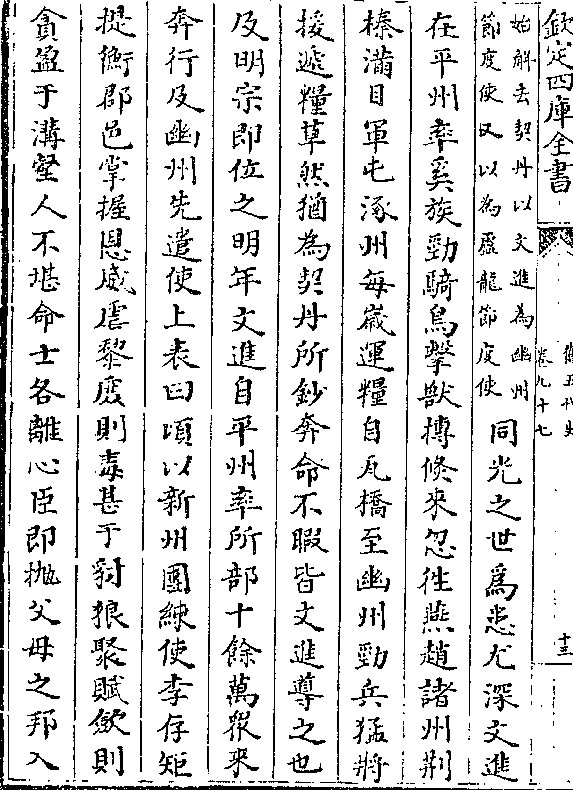 欽定四庫全書
舊五代史
卷九十七
十三
始解去契丹以文進為幽州
節度使又以為盧龍節度使
同光之世為患尤深文進
在平州率奚族勁騎鳥擊獸搏倏來忽徃燕趙諸州荆
榛滿目軍屯涿州每歲運糧自瓦橋至幽州勁兵猛將
援遞糧草然猶為契丹所鈔奔命不暇皆文進導之也
及明宗即位之明年文進自平州率所部十餘萬衆來
奔行及幽州先遣使上表曰頃以新州團練使李存矩
提衡郡邑掌握恩威虐黎庶則毒甚于豺狼聚賦斂則
貪盈于溝壑人不堪命士各離心臣即抛父母之邦入